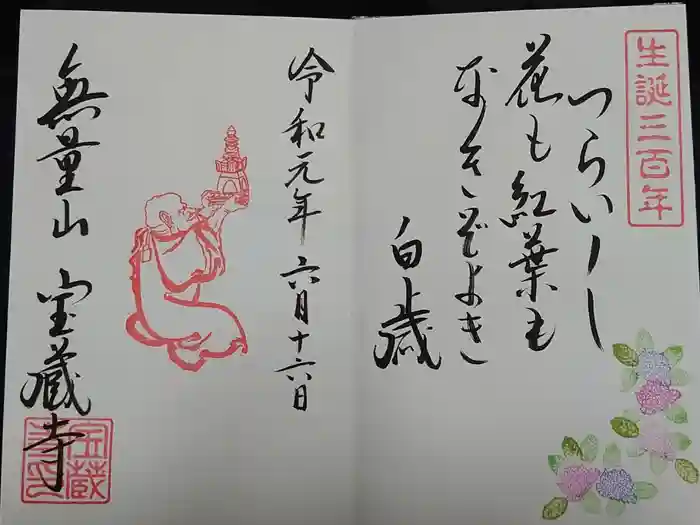 生誕三百年
花も紅葉も
なきぞよき
白歳
令和元年 六月十六日
無量山 宝蔵寺
宝蔵
寺印